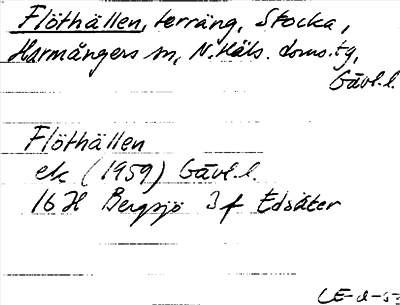 Flöthällen, terräng, Stocka,
Harmångers sn, N. Häls. doms. tg,
Gävl.l.
Flöthällen
ek (1959) Gävl.l.
16 H Bergsjö 3 f Edsäter